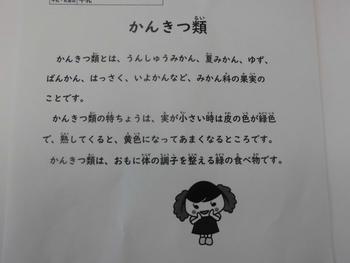 かんきつ類
かんきつ類とは、うんしゅうみかん、夏みかん、ゆず、
ばんかん、はっさく、いよかんなど、みかん科の果実の
ことです。
かんきつ類の特ちょうは、実が小さい時は皮の色が緑色
で、熟してくると、黄色になってあまくなるところです。
かんきつ類は、おもに体の調子を整える緑の食べ物です。